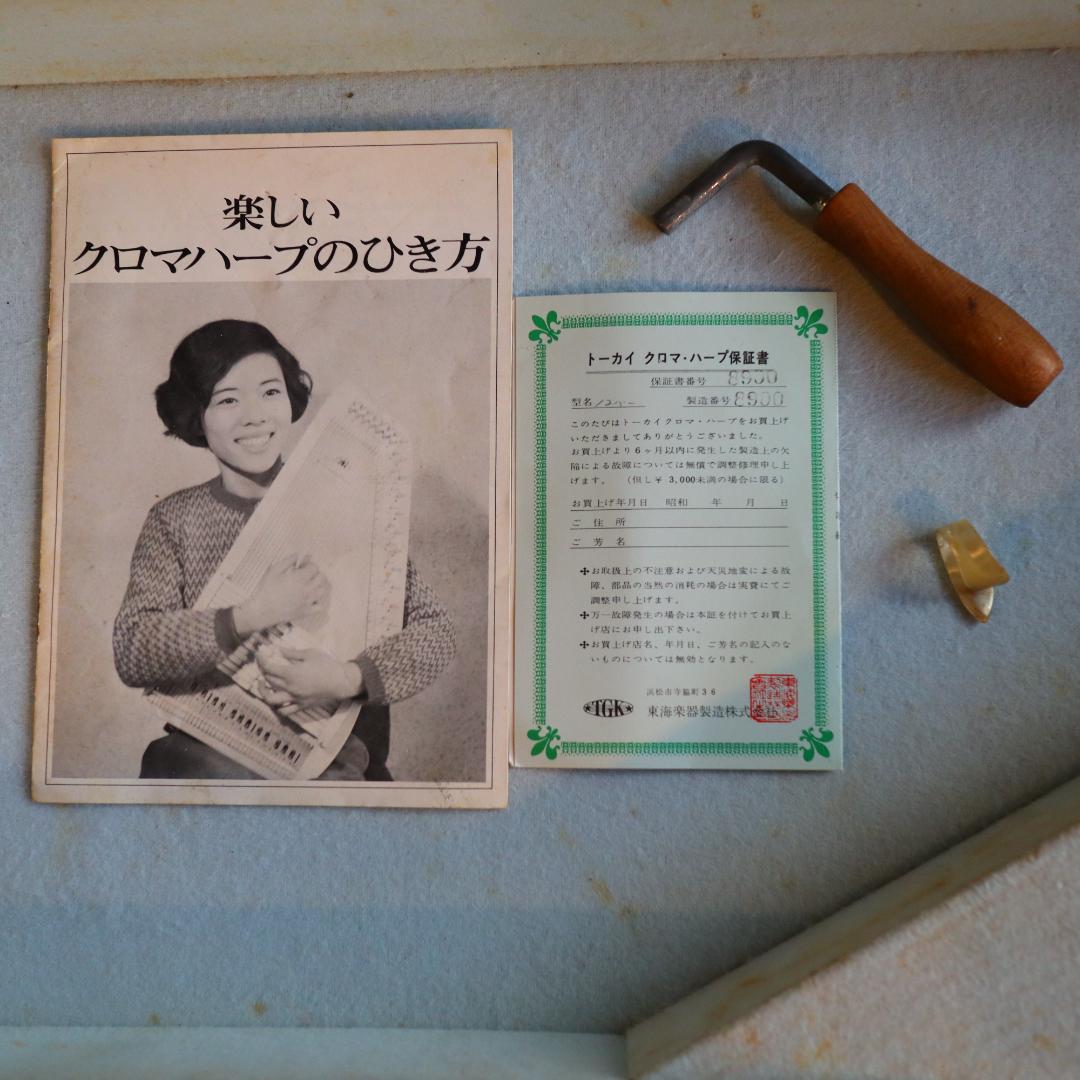 楽しい
クロマハープのひき方
トーカイ クロマ・ハープ保証書
保証書番号 8900
型名 製造番号 8900
このたびはトーカイクロマ・ハープをお買上げ
いただきましてありがとうございました。
お買上げより6ヶ月以内に発生した製造上の欠
陥による故障については無償で調整修理申し上
げます。 (但し¥ 3,000未満の場合に限る)
お買上げ年月日 昭和 年 月 日
ご 住 所
ご 芳 名
✣お取扱上の不注意および天災地変による故
障、部品の当然の消耗の場合は実費にてご
調整申し上げます。
✣万一故障発生の場合は本証を付けてお買上
げ店にお申し出下さい。
✣お買上げ店名、年月日、ご芳名の記入のな
いものについては無効となります。
浜松市寺脇町36
★TGK★ 東海楽器製造株式会社